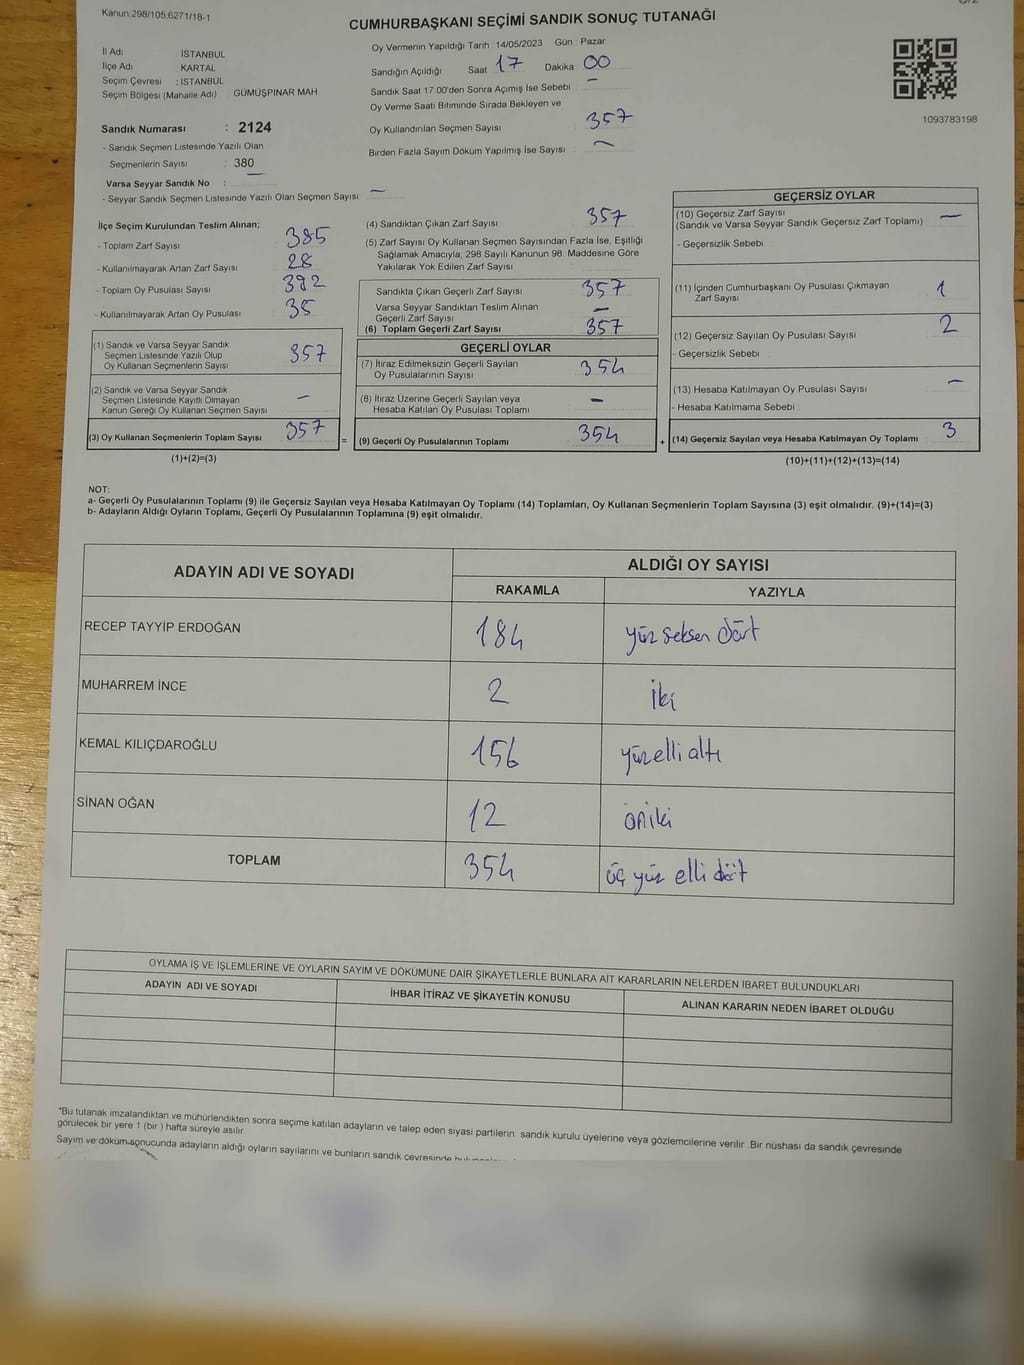 Kanun.298/105,6271/18-1
CUMHURBAŞKANI SEÇİMİ SANDIK SONUÇ TUTANAĞI
İl Adı İSTANBUL
İlçe Adı KARTAL
Seçim Çevresi : İSTANBUL
Seçim Bölgesi (Mahalle Adı) : GÜMÜŞPINAR MAH
Sandık Numarası : 2124
- Sandık Seçmen Listesinde Yazılı Olan
Seçmenlerin Sayısı : 380
Varsa Seyyar Sandık No :
- Seyyar Sandık Seçmen Listesinde Yazılı Olan Seçmen Sayısı: —
Oy Vermenin Yapıldığı Tarih : 14/05/2023 Gün : Pazar
Sandığın Açıldığı Saat 17 Dakika 00
Sandık Saat 17:00'den Sonra Açımış İse Sebebi —
Oy Verme Saati Bitiminde Sırada Bekleyen ve
Oy Kullandırılan Seçmen Sayısı 357
Birden Fazla Sayım Döküm Yapılmış İse Sayısı : —
1093783198
İlçe Seçim Kurulundan Teslim Alınan;
- Toplam Zarf Sayısı 385
- Kullanılmayarak Artan Zarf Sayısı 28
- Toplam Oy Pusulası Sayısı 392
- Kullanılmayarak Artan Oy Pusulası 35
(1) Sandık ve Varsa Seyyar Sandık
Seçmen Listesinde Yazılı Olup
Oy Kullanan Seçmenlerin Sayısı 357
(2) Sandık ve Varsa Seyyar Sandık
Seçmen Listesinde Kayıtlı Olmayan
Kanun Gereği Oy Kullanan Seçmen Sayısı —
(3) Oy Kullanan Seçmenlerin Toplam Sayısı 357 =
(1)+(2)=(3)
(4) Sandıktan Çıkan Zarf Sayısı 357
(5) Zarf Sayısı Oy Kullanan Seçmen Sayısından Fazla İse, Eşitliği
Sağlamak Amacıyla, 298 Sayılı Kanunun 98. Maddesine Göre
Yakılarak Yok Edilen Zarf Sayısı
Sandıkta Çıkan Geçerli Zarf Sayısı 357
Varsa Seyyar Sandıktan Teslim Alınan
Geçerli Zarf Sayısı —
(6) Toplam Geçerli Zarf Sayısı 357
GEÇERLİ OYLAR
(7) İtiraz Edilmeksizin Geçerli Sayılan
Oy Pusulalarının Sayısı 354
(8) İtiraz Üzerine Geçerli Sayılan veya
Hesaba Katılan Oy Pusulası Toplamı —
(9) Geçerli Oy Pusulalarının Toplamı 354 +
GEÇERSİZ OYLAR
(10) Geçersiz Zarf Sayısı —
(Sandık ve Varsa Seyyar Sandık Geçersiz Zarf Toplamı)
- Geçersizlik Sebebi
(11) İçinden Cumhurbaşkanı Oy Pusulası Çıkmayan 1
Zarf Sayısı
(12) Geçersiz Sayılan Oy Pusulası Sayısı 2
- Geçersizlik Sebebi
(13) Hesaba Katılmayan Oy Pusulası Sayısı —
- Hesaba Katılmama Sebebi
(14) Geçersiz Sayılan veya Hesaba Katılmayan Oy Toplamı 3
(10)+(11)+(12)+(13)=(14)
NOT:
a- Geçerli Oy Pusulalarının Toplamı (9) ile Geçersiz Sayılan veya Hesaba Katılmayan Oy Toplamı (14) Toplamları, Oy Kullanan Seçmenlerin Toplam Sayısına (3) eşit olmalıdır. (9)+(14)=(3)
b- Adayların Aldığı Oyların Toplamı, Geçerli Oy Pusulalarının Toplamına (9) eşit olmalıdır.
ADAYIN ADI VE SOYADI ALDIĞI OY SAYISI
RAKAMLA YAZIYLA
RECEP TAYYİP ERDOĞAN 184 yüz seksen dört
MUHARREM İNCE 2 iki
KEMAL KILIÇDAROĞLU 156 yüzelli altı
SİNAN OĞAN 12 oniki
TOPLAM 354 üç yüz elli dört
OYLAMA İŞ VE İŞLEMLERİNE VE OYLARIN SAYIM VE DÖKÜMÜNE DAİR ŞİKAYETLERLE BUNLARA AİT KARARLARIN NELERDEN İBARET BULUNDUKLARI
ADAYIN ADI VE SOYADI İHBAR İTİRAZ VE ŞİKAYETİN KONUSU ALINAN KARARIN NEDEN İBARET OLDUĞU
*Bu tutanak imzalandıktan ve mühürlendikten sonra seçime katılan adayların ve talep eden siyasi partilerin sandık kurulu üyelerine veya gözlemcilerine verilir Bir nüshası da sandık çevresinde
görülecek bir yere 1 (bir ) hafta süreyle asılır
Sayım ve döküm sonucunda adayların aldığı oyların sayılarını ve bunların sandık çevresinde